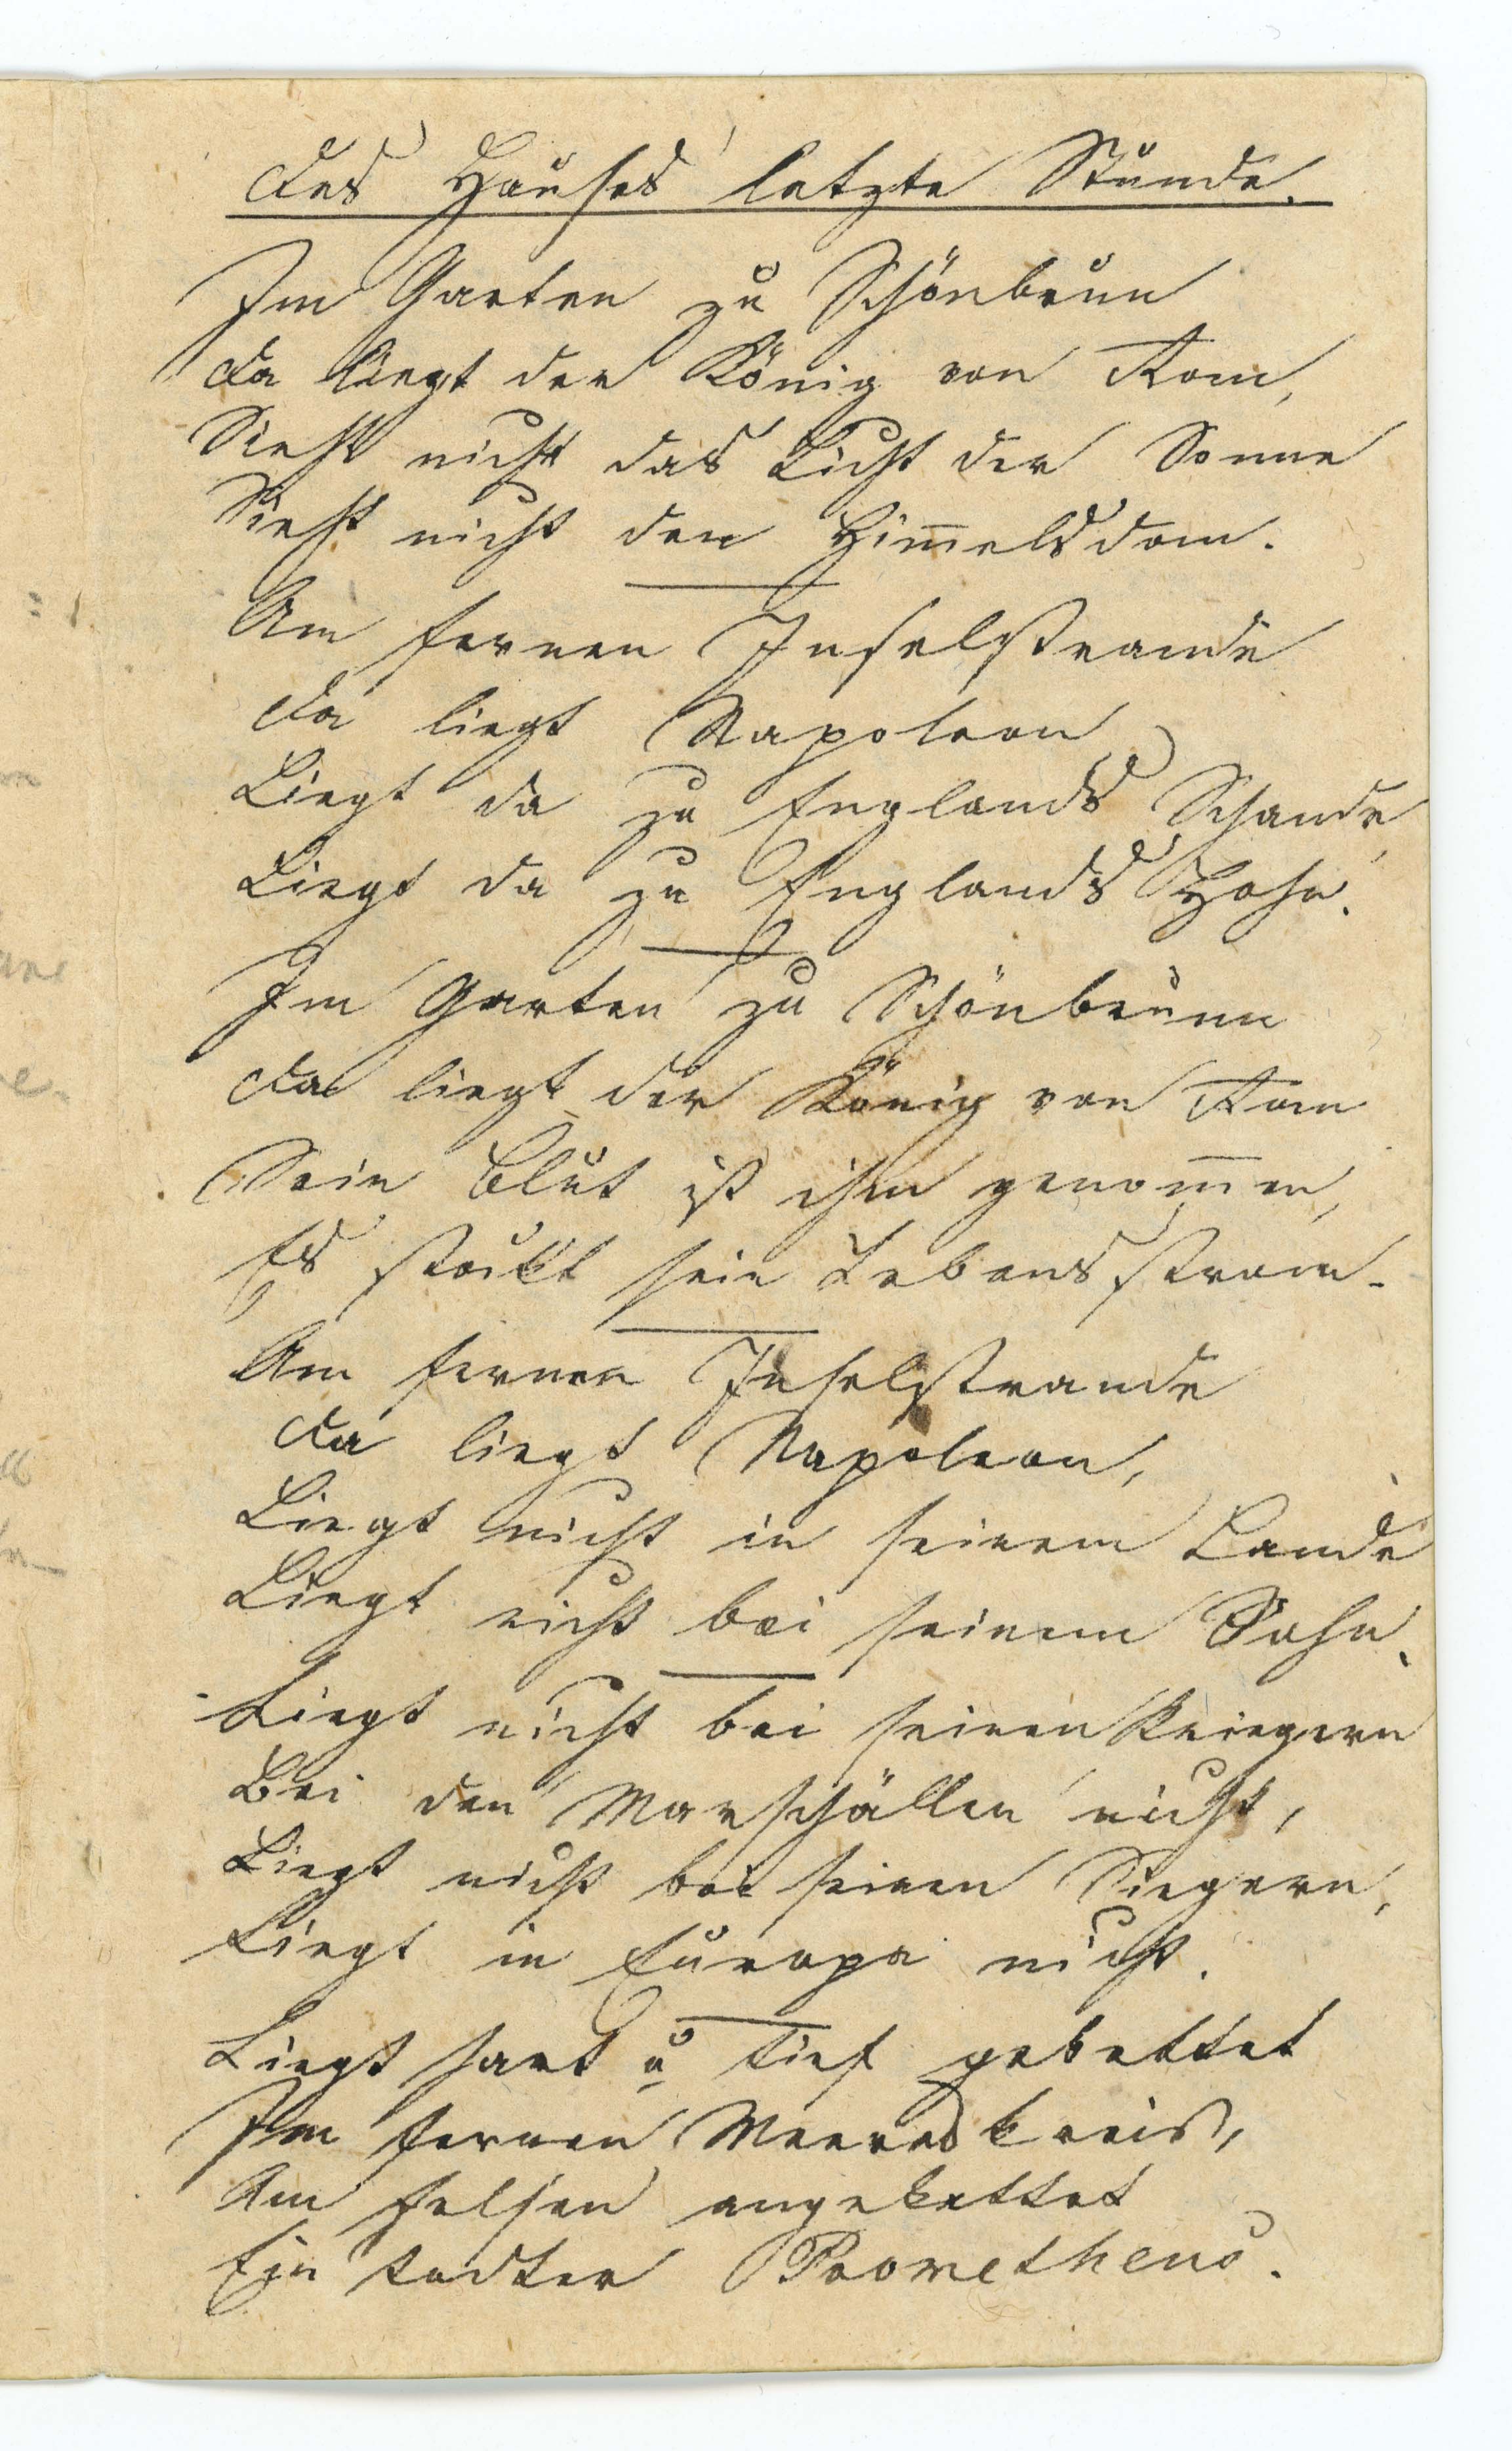 Des Hauses letzte Stunde.
Im Garten zu Schönbrunn
Da liegt der König von Rom,
Sieht nicht das Licht der Sonne
Sieht nicht den Him̅elsdom.
Am fernen Inselstrande
Da liegt Napoleon
Liegt da zu Englands Schande,
Liegt da zu Englands Hohn.
Im Garten zu Schönbrunn
Da liegt der König von Rom
Sein Blut ist ihm genom̅en,
Es stockt sein Lebensstrom.
Am fernen Inselstrande
Da liegt Napoleon,
Liegt nicht in seinem Lande
Liegt nicht bei seinem Sohn.
Liegt nicht bei seinen Kriegern
Bei den Marschällen nicht,
Liegt nicht bei seinen Siegern,
Liegt in Europa nicht.
Liegt hart u tief gebettet
Im fernen Meereskreis,
Am Felsen angekettet
Ein todter Prometheus.